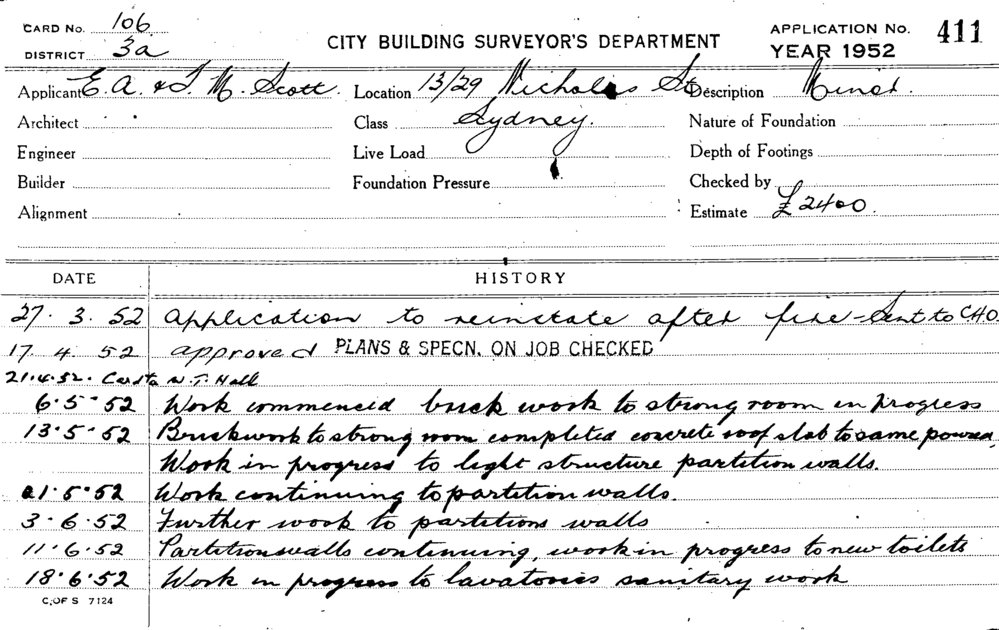 CARD No. 106
DISTRICT 3a
CITY BUILDING SURVEYOR'S DEPARTMENT
APPLICATION No. 411
YEAR 1952
Applicant E. A. & T. M. Scott. Location 13/29 Nicholas St Description Minor.
Architect Class Sydney. Nature of Foundation
Engineer Live Load Depth of Footings
Builder Foundation Pressure Checked by
Alignment Estimate £2400.
DATE HISTORY
27. 3. 52 Application to reinstate after fire - Sent to CHO.
17. 4. 52 approved PLANS & SPECN. ON JOB CHECKED
21.4.52. Card to W. T. Hall
6.5.52 Work commenced brick work to strong room in progress
13.5.52 Brickwork to strong room completed concrete roof slab to same poured,
Work in progress to light structure partition walls.
21.5.52 Work continuing to partition walls.
3.6.52 Further work to partitions walls
11.6.52 Partition walls continuing, work in progress to new toilets
18.6.52 Work in progress to lavatories sanitary work
C. OF S 7124